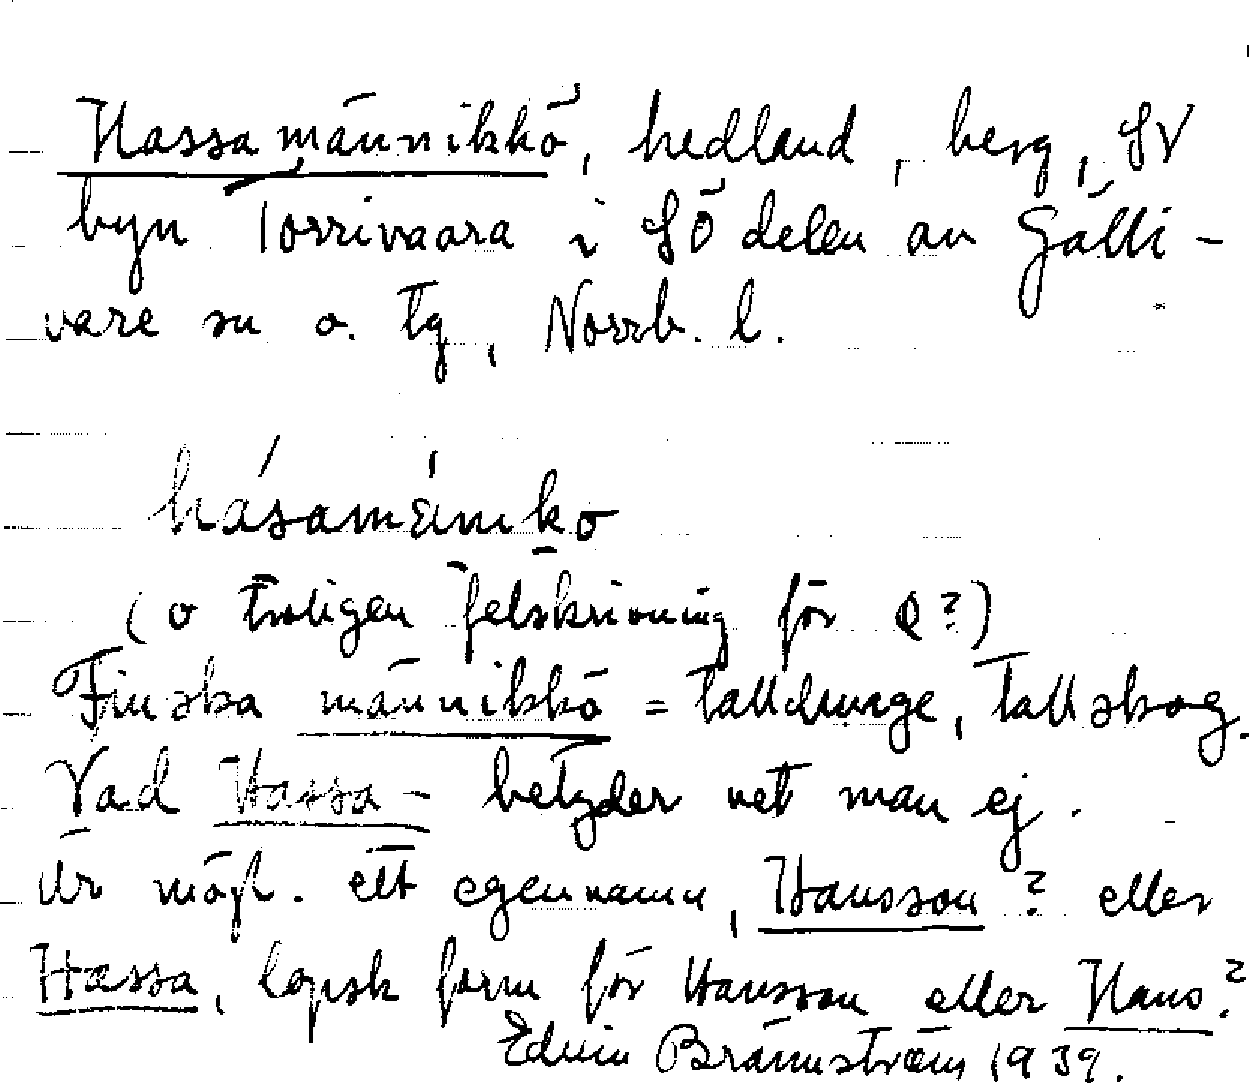 Hassamännikkö, hedland, berg, SV
byn Torrivaara i SÖ delen av Gälli-
vare sn o. tg, Norrb. l.
hásamǽniko
(o troligen felskrivning för ɷ?)
Finska männikkö = talldunge, tallskog.
Vad Hassa- betyder vet man ej.
Är möjl. ett egennamn, Hansson? eller
Hassa, lapsk form för Hansson eller Hans?
Edvin Brännström 1939.